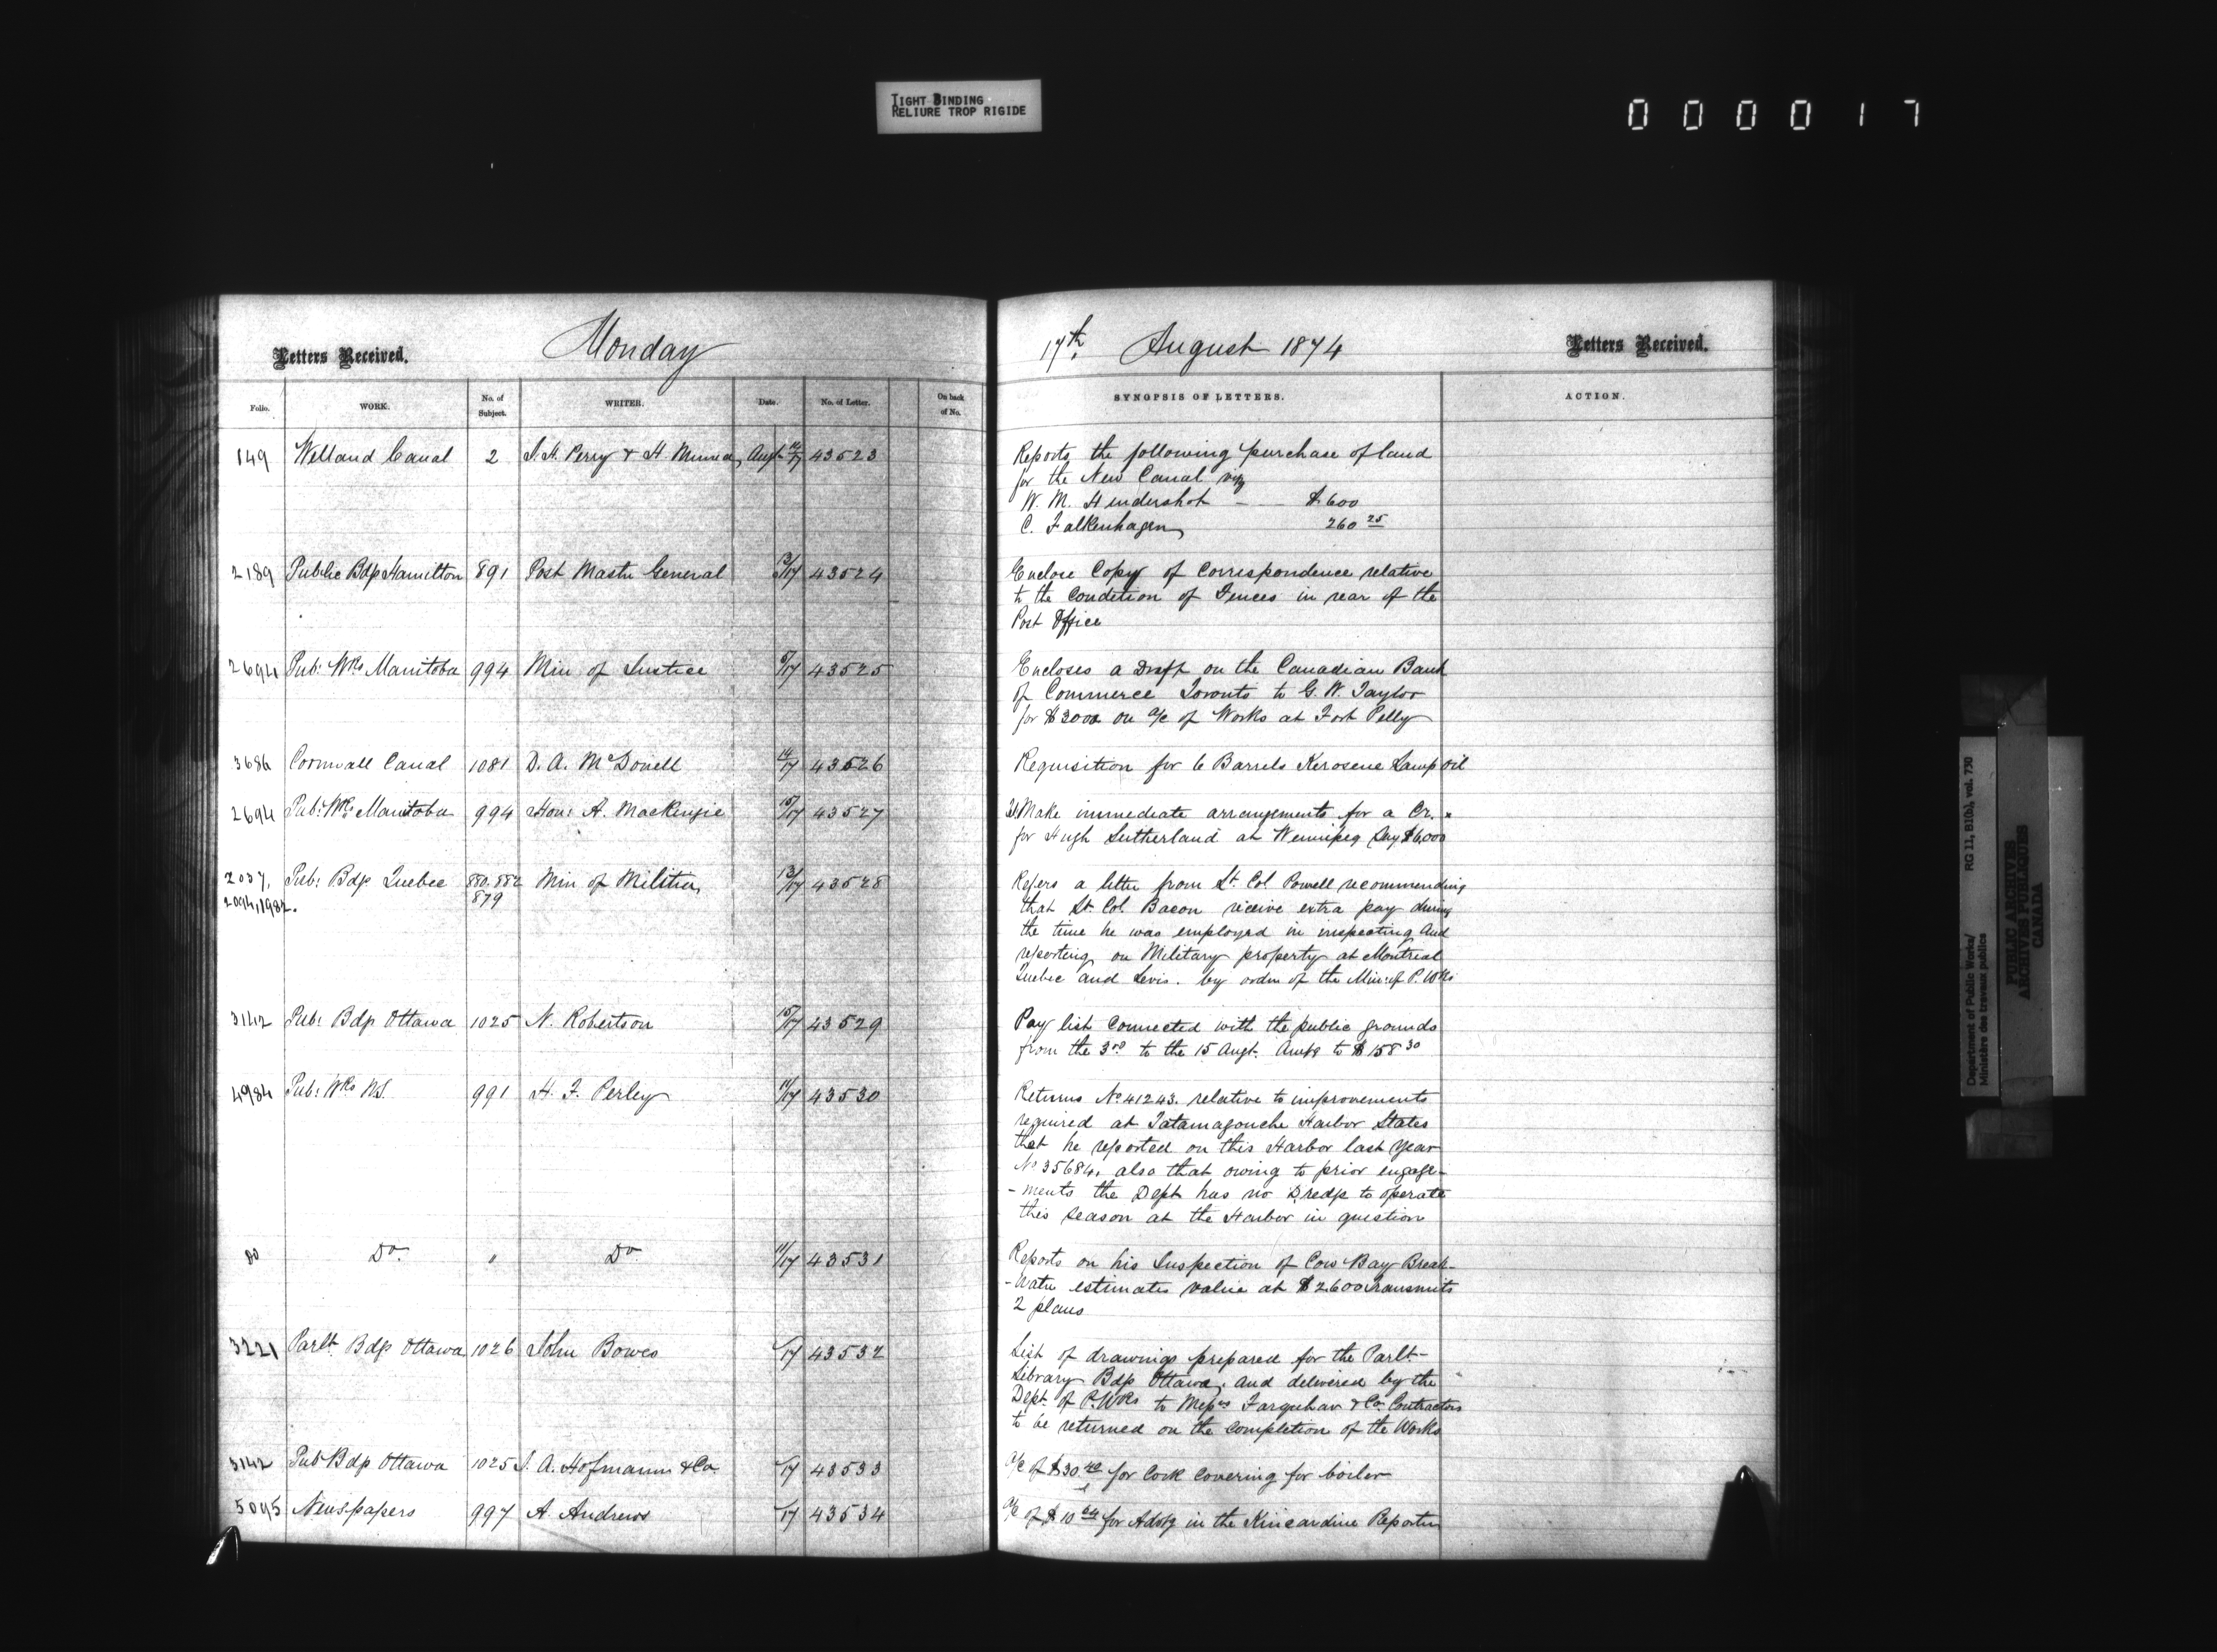 TIGHT BINDING
RELIURE TROP RIGIDE
000017
Letters Received.
Monday
Folio. WORK. No. of Subject. WRITER. Date. No. of Letter. On back of No.
149 Welland Canal 2 Augt 14/17 43523
2189 Public Bdgs Hamilton 891 Post Mastr General 13/17 43524
2694 Pub: Wks Manitoba 994 Min of Justice 43525
3686 Cornwall Canal 1081 D. A. McDonell 14/17 43526
2694 Pub: Wks Manitoba 994 Hon: A. Mackenzie 15/17 43527
2037, Pub: Bdgs Quebec 880.882 Min of Militia 13/17 43528
2094, 1982. 879
3142 Pub: Bdgs Ottawa 1025 N. Robertson 15/17 43529
4984 Pub: Wks N.S. 991 H. F. Perley 11/17 43530
Do Do. " Do 11/17 43531
3221 Parlt Bdgs Ottawa 1026 John Bowes /17 43532
3142 Pub Bdgs Ottawa 1025 A. Hofmann & Co. /17 43533
5095 Newspapers 997 A. Andrews /17 43534
17th August 1874
Letters Received.
SYNOPSIS OF LETTERS. ACTION.
Reports the following purchase of land
for the New Canal viz
W. M. Hendershot - - $600
C. Falkenhagen 260 25
Enclose Copy of Correspondence relative
to the Condition of Fences in rear of the
Post Office
Encloses a Draft on the Canadian Bank
of Commerce Toronto to G. W. Taylor
for $3000 on a/c of Works at Fort Pelly
Requisition for 6 Barrels Kerosene Lamp oil
Make immediate arrangements for a Cr.
for Hugh Sutherland at Winnipeg Say $6000
Refers a letter from Lt Col Powell recommending
that Lt. Col. Bacon receive extra pay during
the time he was employed in inspecting and
reporting on Military property at Montreal
Quebec and Levis. by order of the Min: of P. Wks
Pay list Connected with the public grounds
from the 3rd to the 15 Augt. Amtg to $158 30
Returns No 41243. relative to improvements
required at Tatamagouche Harbor States
that he reported on this Harbor last year
No 35684. also that owing to prior engage-
-ments the Dept has no Dredge to operate
this Season at the Harbor in question
Reports on his Inspection of Cow Bay Break-
-Water estimates value at $2600 transmits
2 plans
List of drawings prepared for the Parlt-
Library Bdgs Ottawa, and delivered by the
Dept. of P. Wks to Messrs Farquhar & Co. Contractors
to be returned on the completion of the Works
a/c of $30 40 for Cork Covering for boiler
a/c of $10 64 for Advtg in the Kincardine Reporter
Department of Public Works/
Ministère des travaux publics
RG 11, B1(b), vol. 730
PUBLIC ARCHIVES
ARCHIVES PUBLIQUES
CANADA